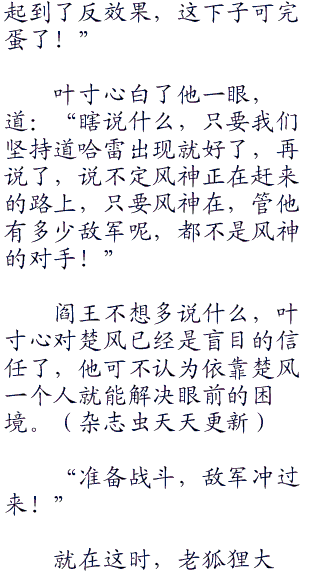 起到了反效果，这下子可完
蛋了！”
叶寸心白了他一眼，
道：“瞎说什么，只要我们
坚持道哈雷出现就好了，再
说了，说不定风神正在赶来
的路上，只要风神在，管他
有多少敌军呢，都不是风神
的对手！”
阎王不想多说什么，叶
寸心对楚风已经是盲目的信
任了，他可不认为依靠楚风
一个人就能解决眼前的困
境。（杂志虫天天更新）
“准备战斗，敌军冲过
来！”
就在这时，老狐狸大